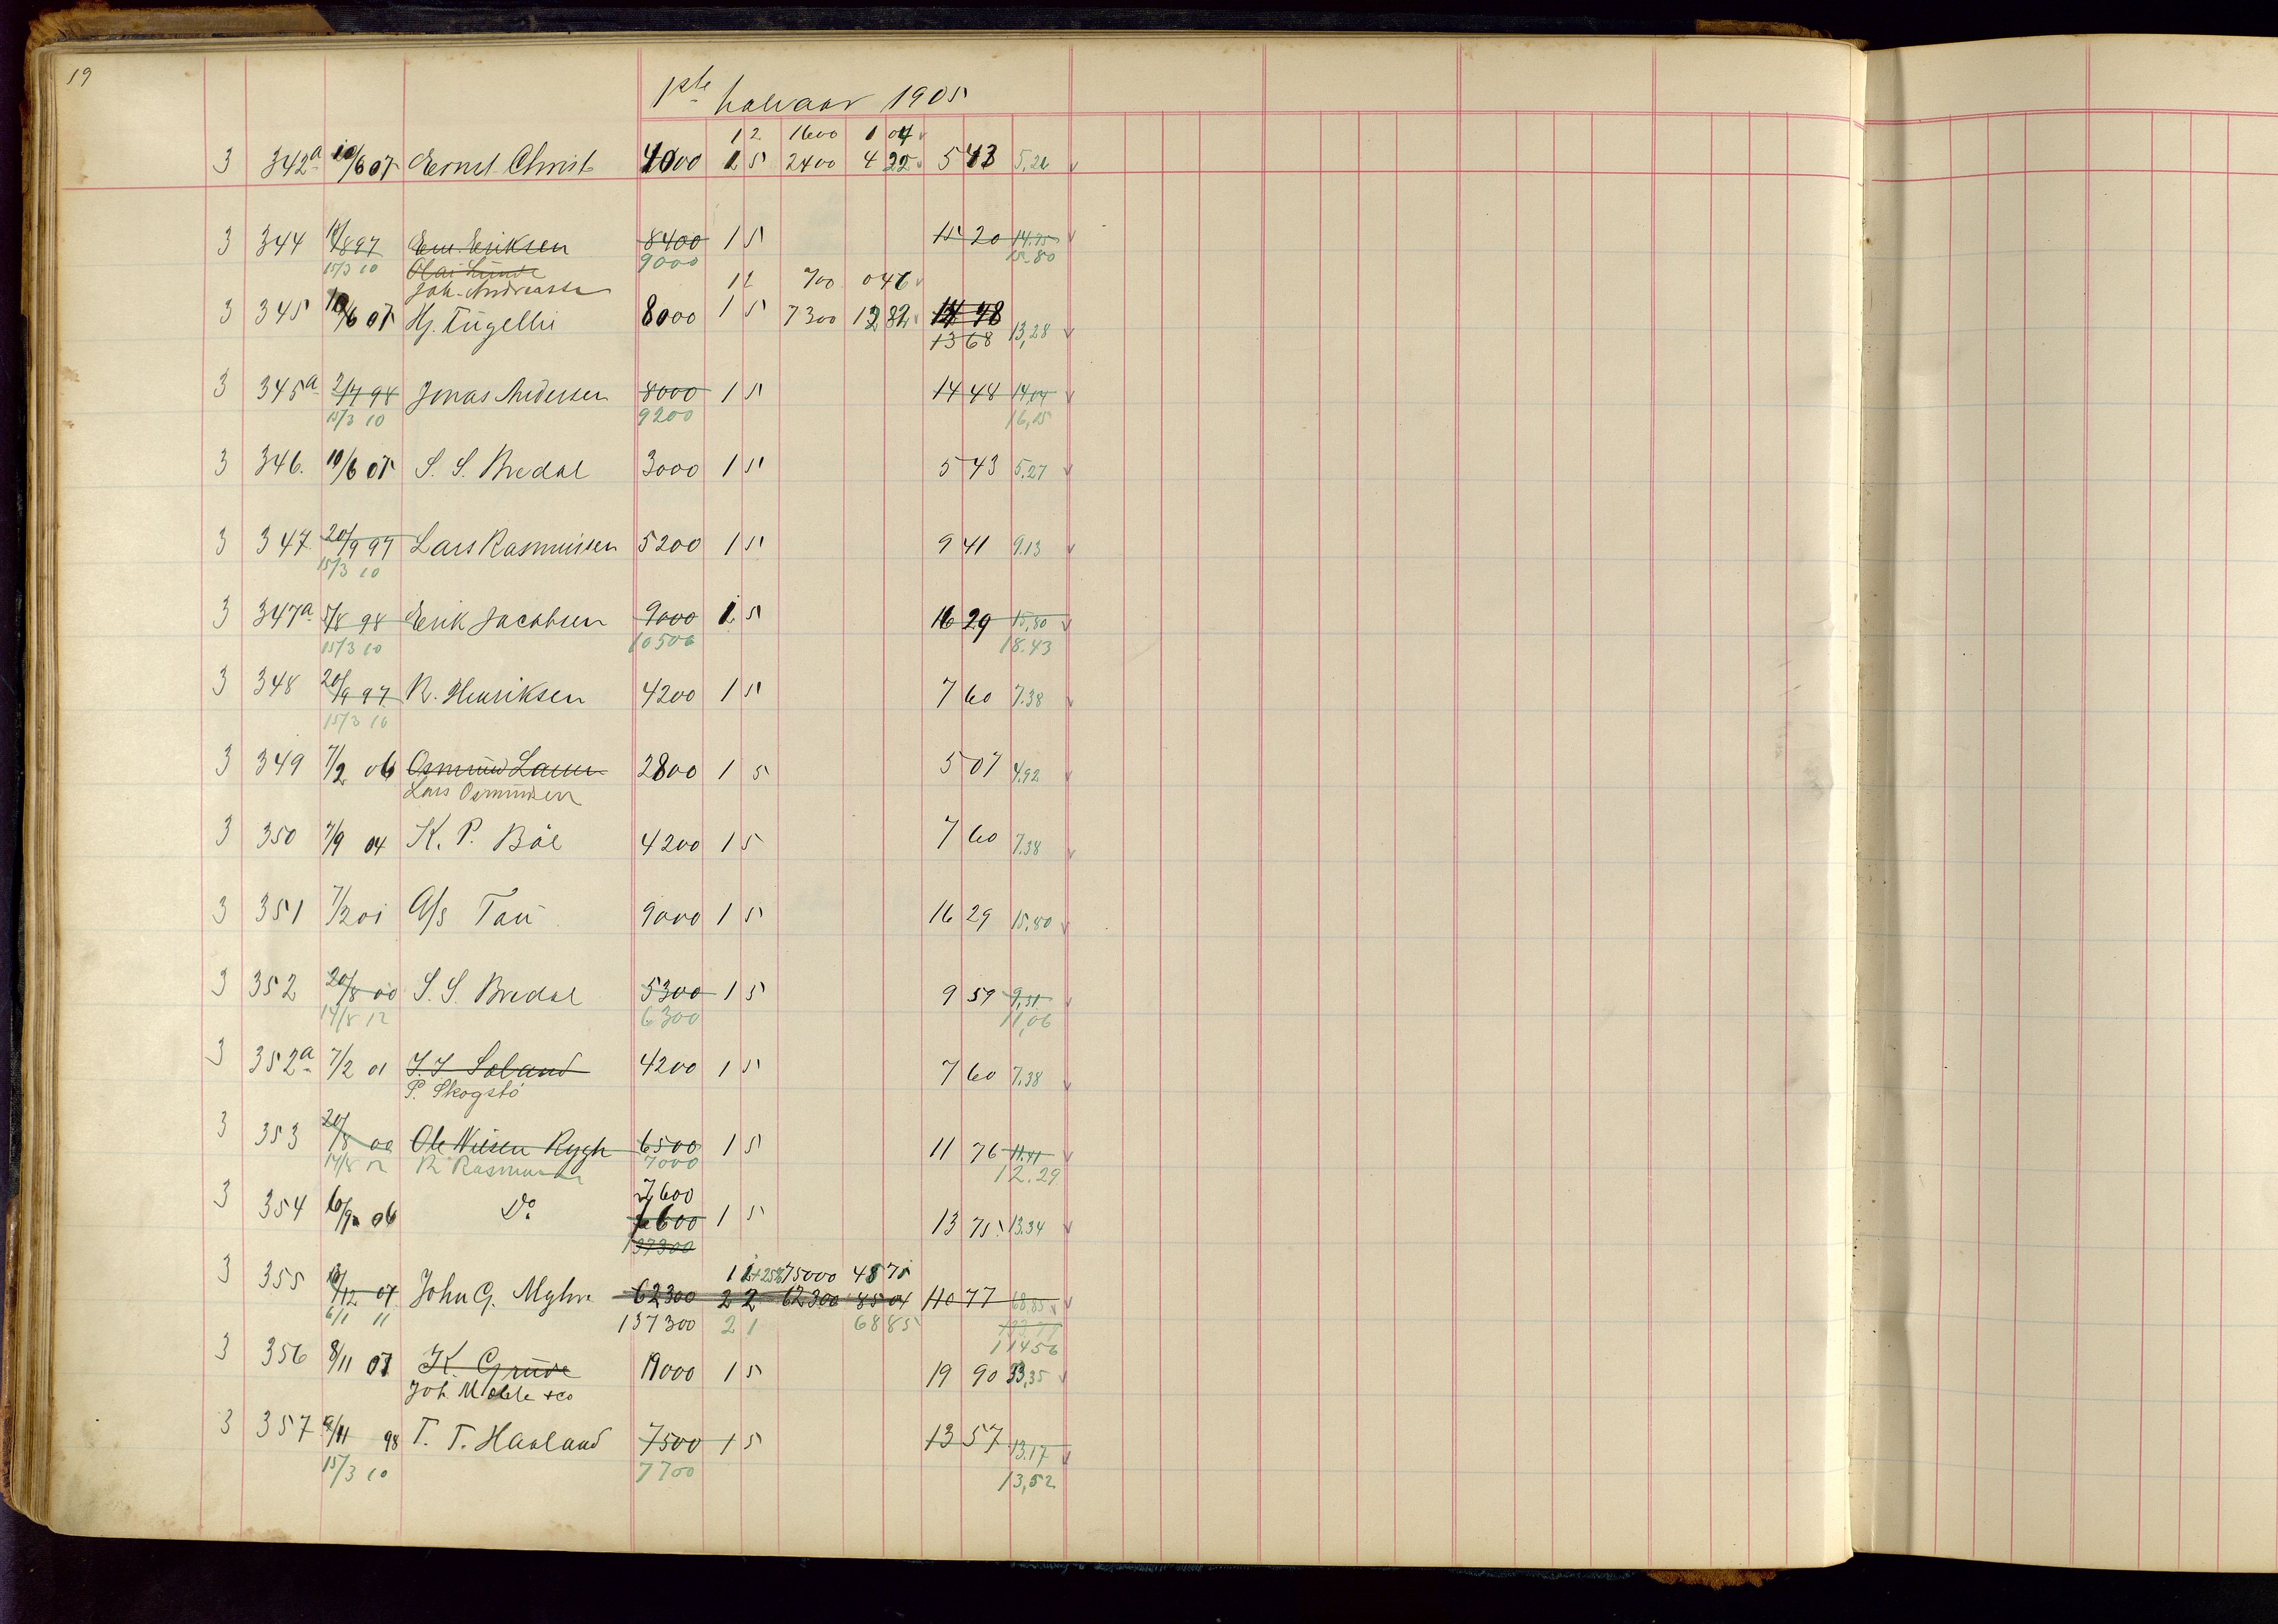 19
1ste halvaar 1905
1 2 1600 1 04
3 342a 10/6 05 Ernst Christ 4000 1 5 2400 4 22 5 43 5,26
3 344 97 Em. Eriksen 8400 1 5 15 20 14.75
15/3 10 Olai Lunde 9000 15.80
Joh. Andreassen 12 700 0 46
3 345 10/6 05 Hj. Tügellii 8000 1 5 7300 13 82
13 68 13,28
3 345a 2/4 98 Jonas Andersen 8000 1 5 14 48 14,04
15/3 10 9200 16,15
3 346. 10/6 05 S. S. Bredal 3000 1 5 5 43 5.27
3 347 20/9 97 Lars Rasmussen 5200 1 5 9 41 9.13
15/3 10
3 347a 5/8 98 Erik Jacobsen 9000 1 5 16 29 15,80
15/3 10 10500 18.43
3 348 20/9 97 R. Henriksen 4200 1 5 7 60 7.38
15/3 10
3 349 7/2 06 Osmund Lauer 2800 1 5 5 07 4,92
Lars Osmundsen
3 350 7/9 04 K. P. Böe 4200 1 5 7 60 7.38
3 351 7/2 01 A/s Tau 9000 1 5 16 29 15,80
3 352 20/8 00 S. S. Bredal 5300 1 5 9 59 9,31
14/8 12 6300 11,06
3 352a 7/2 01 Soland 4200 1 5 7 60 7.38
P. Skogstö
3 353 20/8 00 Ole Nilsen Rygh 6500 1 5 11 76 11.41
14/8 12 R Rasmussen 7000 12.29
7,600
3 354 6/9 06 Do 6600 1 5 13 75 13.34
137300
1 2 + 25% 75000 48 75
3 355 /12 07 John G. Myhre 62300 2 2 62300 85 04 110 77 68.85
6/1 11 137300 2 1 68 85
114 56
3 356 8/11 07 K. Grude 19000 1 5 19 90 33,35
Joh. Mæhle & Co
3 357 9/11 98 T. T. Haaland 7500 1 5 13 57 13.17
15/3 10 7700 13,52